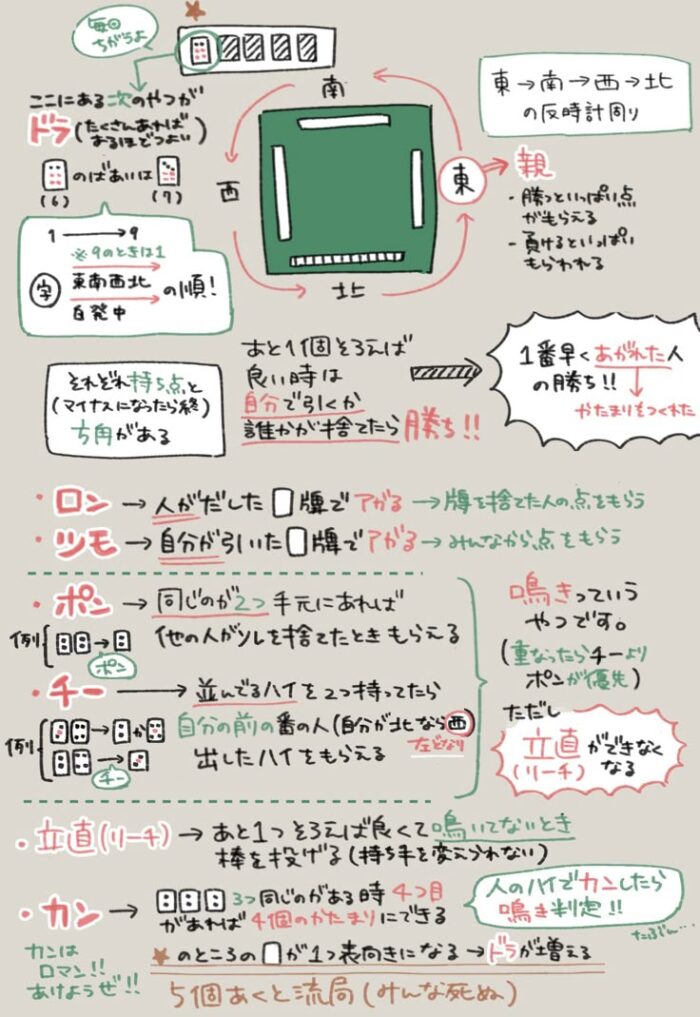 毎回
ちがうよ
ここにある次のやつが
ドラ(たくさんあれば
あるほどつよい)
のばあいは
(6)
(7)
1→9
※9のときは1
字
東南西北
白発中
の順!
南
西
東
北
東→南→西→北
の反時計周り
親
・勝つといっぱい点
がもらえる
・負けるといっぱい
もらわれる
それぞれ持ち点と
(マイナスになったら終)
方角がある
あと1個そろえば
良い時は
自分で引くか
誰かが捨てたら勝ち!!
1番早くあがれた人
の勝ち!!
かたまりをつくれた
・ロン→人がだした牌でアガる→牌を捨てた人の点をもらう
・ツモ→自分が引いた牌でアガる→みんなから点をもらう
・ポン→同じのが2つ手元にあれば
他の人がソレを捨てたときもらえる
例{
→
ポン
・チー→並んでるハイを2つ持ってたら
自分の前の番の人(自分が北なら西)
左どなり
出したハイをもらえる
例{
→か
→
チー
鳴きっていう
やつです。
(重なったらチーより
ポンが優先)
ただし
立直ができなく
(リーチ)なる
・立直(リーチ)→あと1つそろえば良くて鳴いてないとき
棒を投げる(持ち手を変えられない)
・カン→3つ同じのがある時4つ目
があれば4個のかたまりにできる
人のハイでカンしたら
鳴き判定!!
たぶん…
カンは
ロマン!!
あけようぜ!!
★のところの が1つ表向きになる→ドラが増える
5個あくと流局(みんな死ぬ)